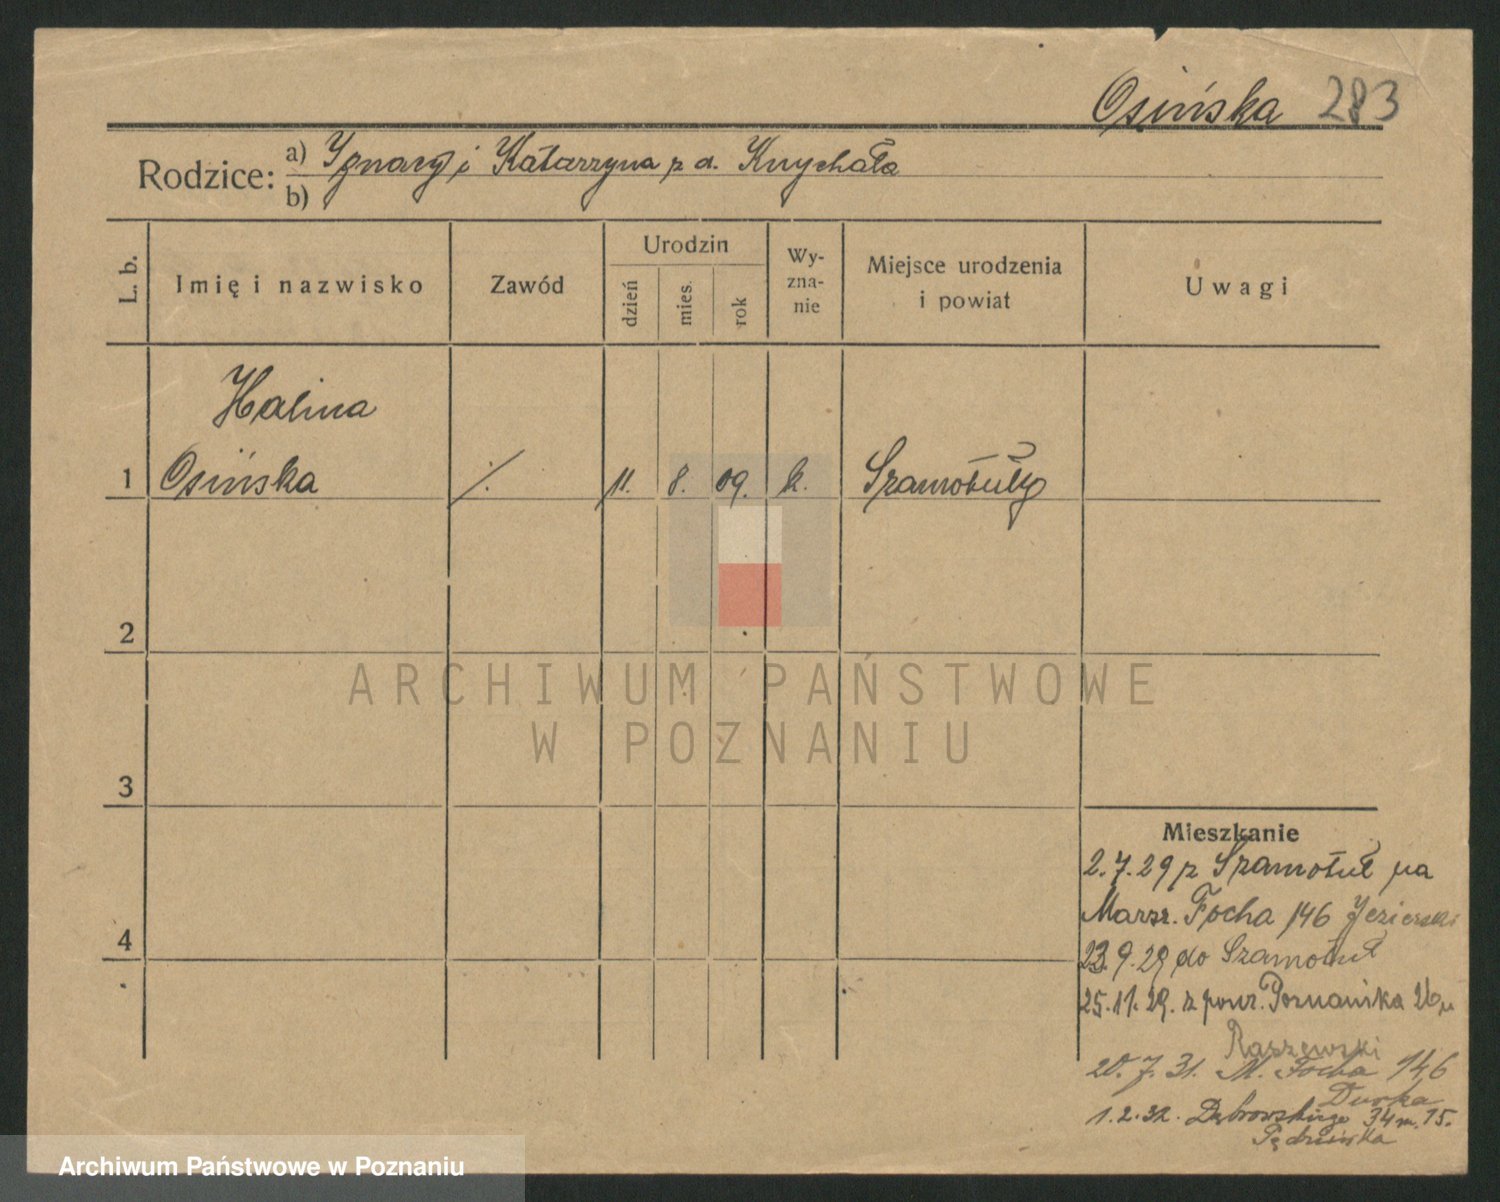 Osińska 283
Rodzice: a) Ignacy i Katarzyna z d. Knychała
b)
L. b. Imię i nazwisko Zawód Urodzin dzień mies. rok Wy-zna-nie Miejsce urodzenia i powiat Uwagi
Halina
1 Osińska ./. 11. 8. 09. k. Szamotuły
2
ARCHIWUM PAŃSTWOWE
W POZNANIU
3
Mieszkanie
2.7.29 z Szamotuł na
Marsz. Focha 146 Jezierski
4
23.9.29 do Szamotuł
25.11.29. z powr. Poznańska 26
Raszewski
20.7.31. M. Focha 146
Durka
1.2.32. Dąbrowskiego 34 m. 15.
Archiwum Państwowe w Poznaniu